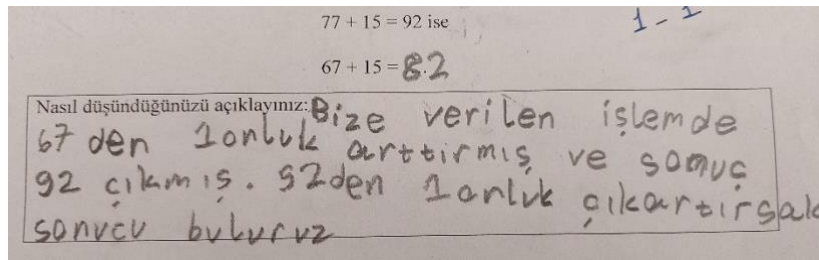 1-1
77 + 15 = 92 ise
67 + 15 = 82
Nasıl düşündüğünüzü açıklayınız: Bize verilen işlemde
67 den 1onluk arttirmış ve sonuç
92 çıkmış. 92den 1onluk çıkartırsak
sonucu buluruz